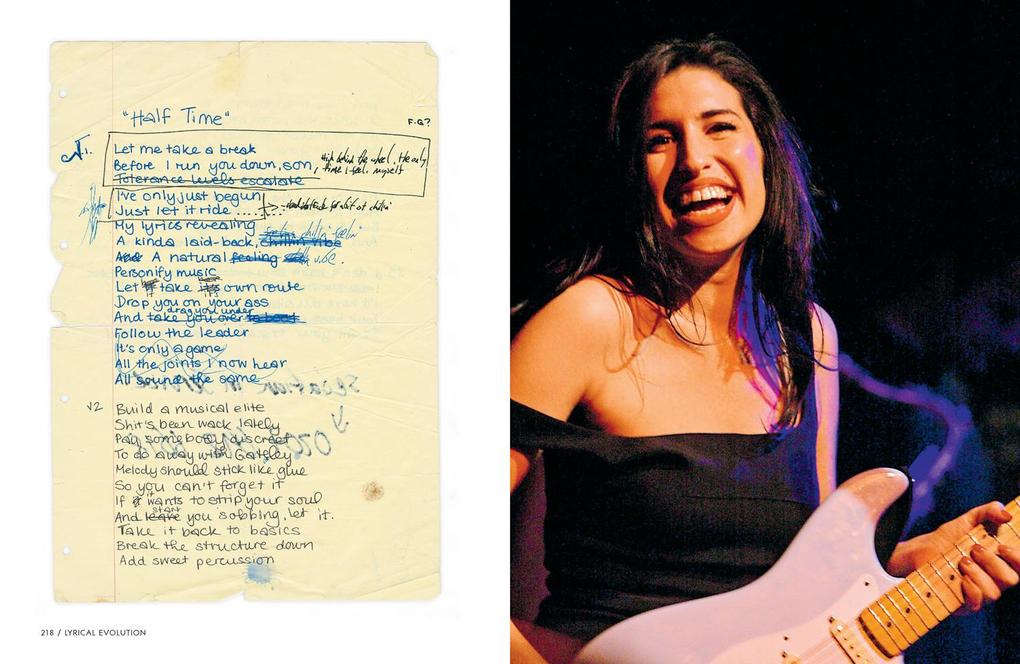 "Half Time"
F.G?
1.
Let me take a break
Before I run you down, son,
High behind the wheel, the only
time I feel myself
Tolerance levels escalate
I've only just begun
Just let it ride ....
My lyrics revealing
A kinda laid-back, chillin vibe
And A natural feeling vibe.
Personify music
Let it take its own route
Drop you on your ass
drag you under
And take you over to boot
Follow the leader
It's only a game
All the joints I now hear
All sound the same
V2
Build a musical elite
Shit's been wack lately
Pay somebody discreet
To do away with Gatsley
Melody should stick like glue
So you can't forget it
If it wants to strip your soul
start
And leave you sobbing, let it.
Take it back to basics
Break the structure down
Add sweet percussion
218 / LYRICAL EVOLUTION